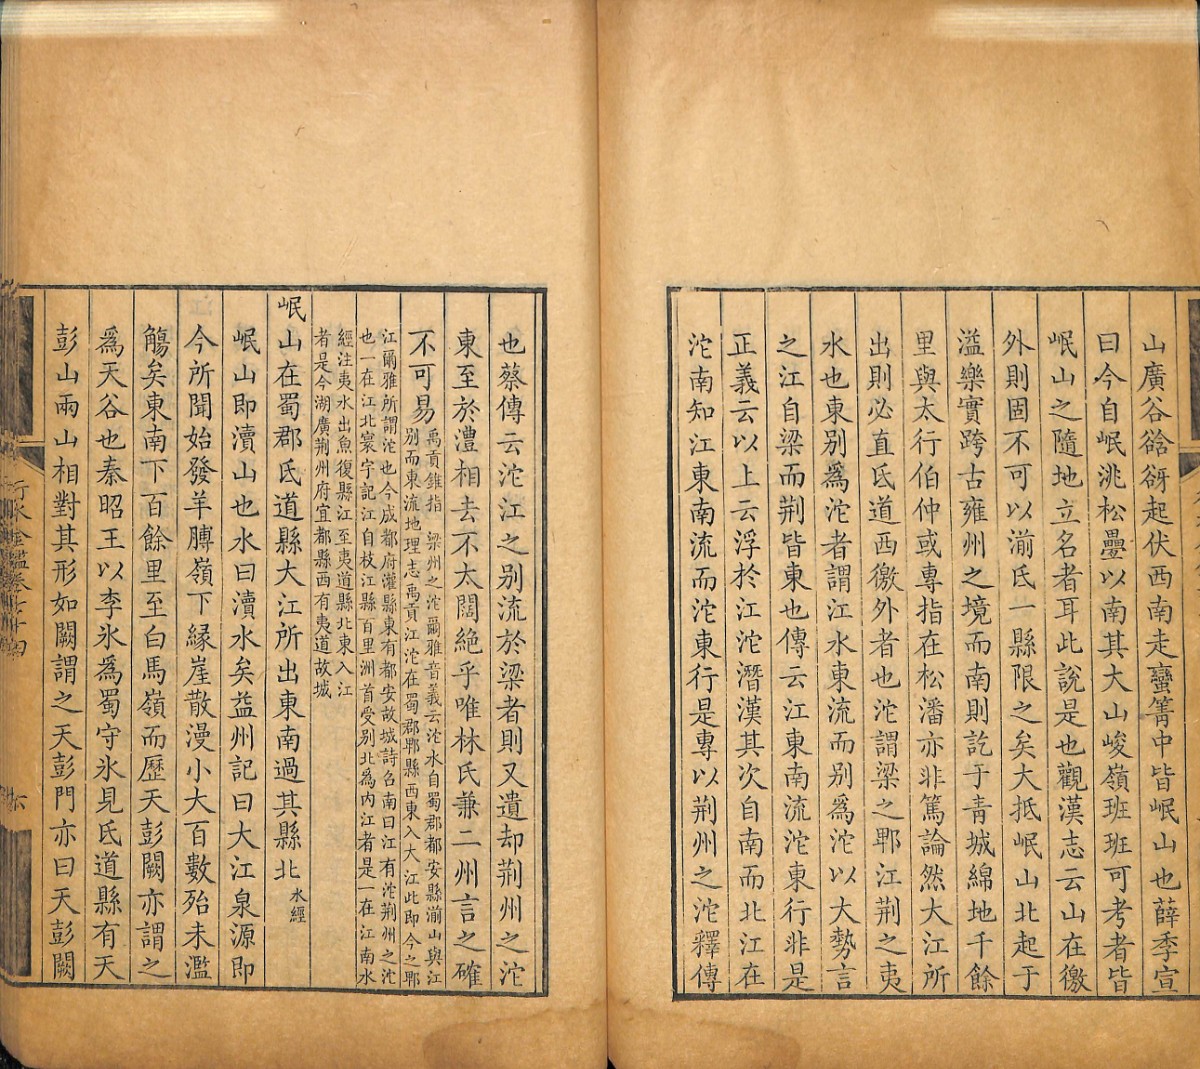 山廣谷谽谺起伏西南走蠻箐中皆岷山也薛季宣
曰今自岷洮松疊以南其大山峻嶺班班可考者皆
岷山之隨地立名者耳此說是也觀漢志云山在徼
外則固不可以湔氐一縣限之矣大抵岷山北起于
溢樂實跨古雍州之境而南則訖于青城綿地千餘
里與太行伯仲或專指在松潘亦非篤論然大江所
出則必直氐道西徼外者也沱謂梁之郫江荆之夷
水也東別爲沱者謂江水東流而别爲沱以大勢言
之江自梁而荆皆東也傳云江東南流沱東行非是
正義云以上云浮於江沱潛漢其次自南而北江在
沱南知江東南流而沱東行是專以荆州之沱釋傳
也蔡傳云沱江之别流於梁者則又遺却荆州之沱
東至於澧相去不太闊絶乎唯林氏兼二州言之確
不可易
禹貢錐指 梁州之沱爾雅音義云沱水自蜀郡都安縣湔山與江
别而東流地理志禹貢江沱在蜀郡郫縣西東入大江此即今之郫
江爾雅所謂沱也今成都府灌縣東有都安故城詩召南曰江有沱荆州之沱
也一在江北寰宇記江自枝江縣百里洲首受别北爲内江者是一在江南水
經注夷水出魚復縣江至夷道縣北東入江
者是今湖廣荆州府宜都縣西有夷道故城
岷山在蜀郡氐道縣大江所出東南過其縣北
水經
岷山即瀆山也水曰瀆水矣益州記曰大江泉源即
今所聞始發羊膊嶺下緣崖散漫小大百數殆未濫
觴矣東南下百餘里至白馬嶺而歷天彭闕亦謂之
爲天谷也秦昭王以李氷爲蜀守氷見氐道縣有天
彭山兩山相對其形如闕謂之天彭門亦曰天彭闕